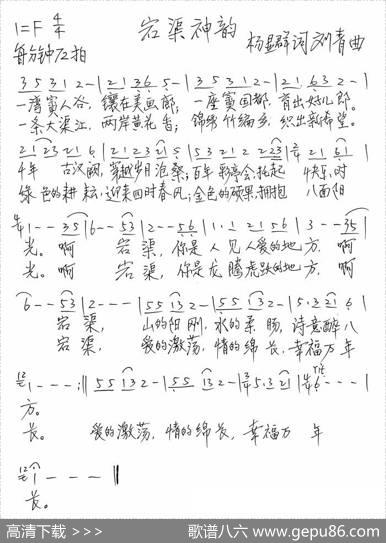 1=F 4/4
宕渠神韵
每分钟72拍
杨显群词 刘青曲
3 5 3 1 2 - | 2 1 3 6 5 - | 3 5 3 1 2 - | 2 1 6 3 2 - |
一湾賨人谷, 镶在美画廊, 一座賨国都, 育出好儿郎。
一条大渠江, 两岸黄花香; 锦绣竹编乡, 织出新希望。
2 1 2 3 2 1 6 | 2 1 2 3 2 1 5 | 5 3 2 1 2 2 2 3 | 2/4 2 1 6 1
千年 古汉阙, 穿越岁月沧桑; 百年 彩亭会, 托起 快乐,时
绿色的耕耘, 迎来四时春风; 金色的硕果, 拥抱 八面阳
4/4 1 - - 3 5 | 6 - - 5 3 | 2 - - 5 6 | 1 · 1 2 1 5 6 | 3 - - 3 5 |
光。啊 宕渠, 你是人见人爱的地方。啊
光。啊 宕渠, 你是龙腾虎跃的地方。啊
6 - - 5 3 | 2 - - - | 5 5 1 3 2 - | 5 5 1 3 2 - | 5 · 3 2 1 6 |
宕渠, 山的阳刚, 水的柔肠, 诗意醉八
宕渠, 爱的激荡, 情的绵长, 幸福万年
1 - - - :‖ 5 5 1 3 2 - | 5 5 1 3 2 - | 5 · 3 2 1 | 4/4 6 - - - |
rit
方。
长。 爱的激荡, 情的绵长, 幸福万 年
1 - - - ‖
长。
高清下载 >>>
歌谱八六 www.gepu86.com